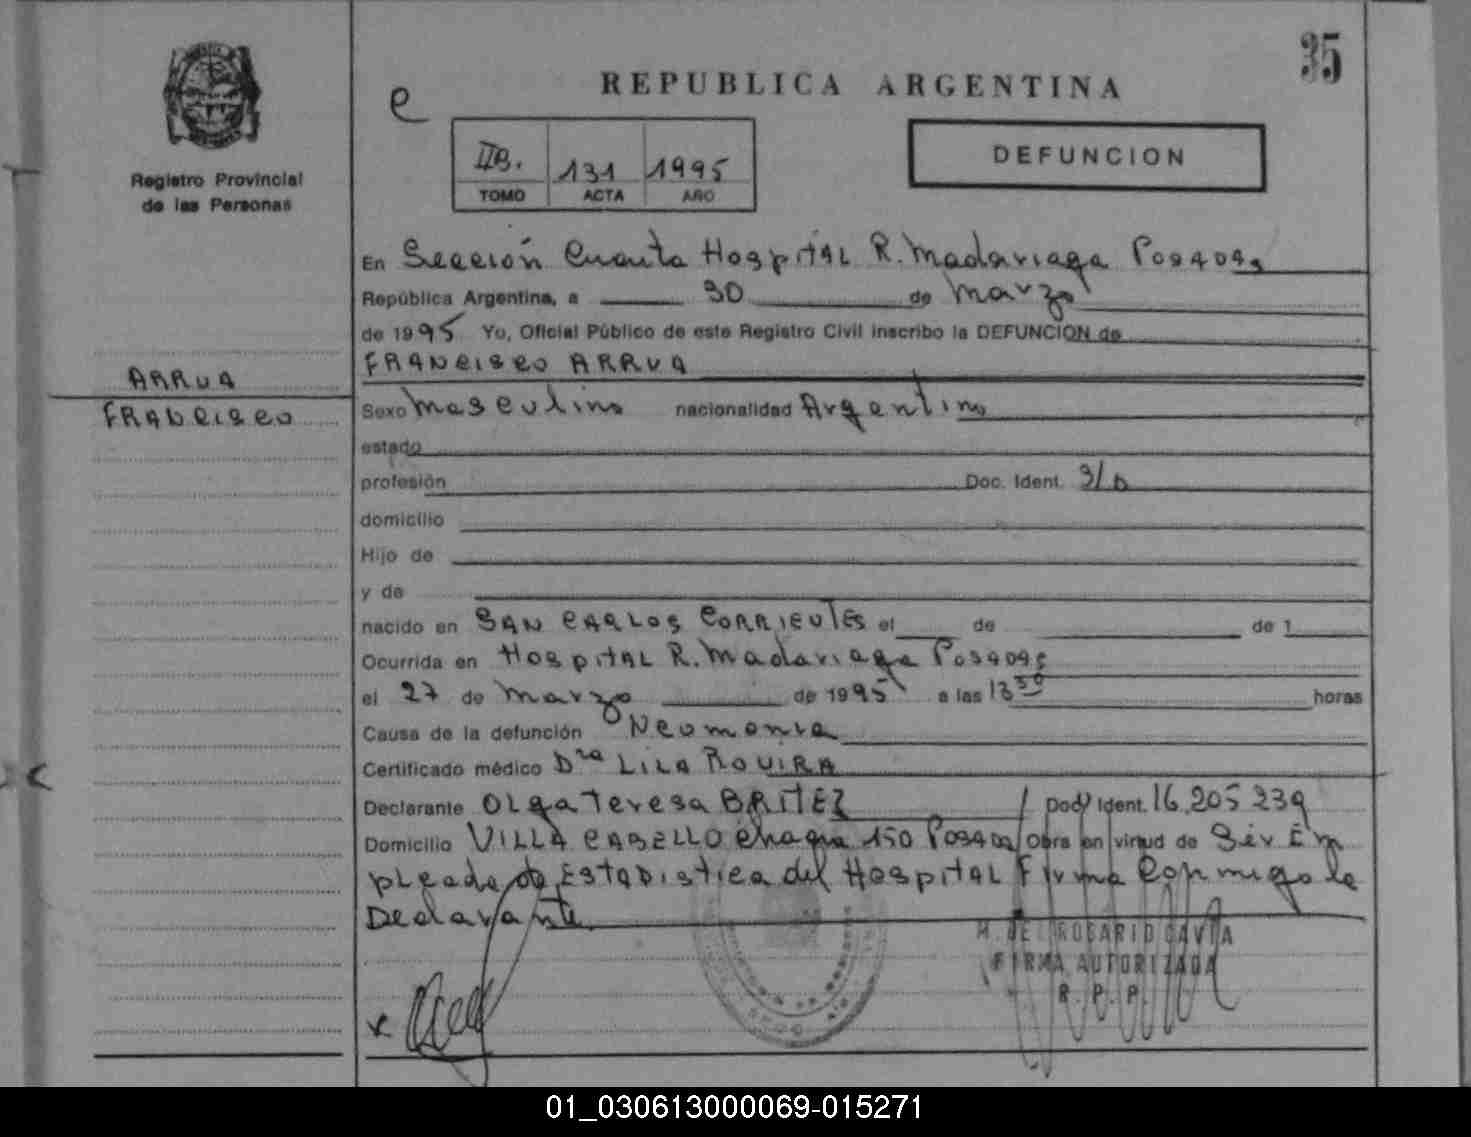 35
REPUBLICA ARGENTINA
e
Registro Provincial
de las Personas
IIB. 131 1995
TOMO ACTA AÑO
DEFUNCION
En Sección Cuarta Hospital R. Madariaga Posadas
República Argentina, a 30 de Marzo
de 1995 Yo, Oficial Público de este Registro Civil inscribo la DEFUNCION de
FRANCISCO ARRUA
ARRUA
FRANCISCO
Sexo Masculino nacionalidad Argentino
estado
profesión Doc. Ident. S/D
domicilio
Hijo de
y de
nacido en SAN CARLOS CORRIENTES el de de 1
Ocurrida en Hospital R. Madariaga Posadas
el 27 de Marzo de 1995 a las 13 30 horas
Causa de la defunción Neomonia
Certificado médico Dra LILA ROVIRA
Declarante Olga Teresa BRITEZ Doc. Ident. 16.205.239
Domicilio VILLA CABELLO Chacra 150 Posadas Obra en virtud de Ser Em
pleada de Estadistica del Hospital Firma Conmigo la
Declarante.
M. DEL ROSARIO GAVIA
FIRMA AUTORIZADA
R. P. P.
01_030613000069-015271